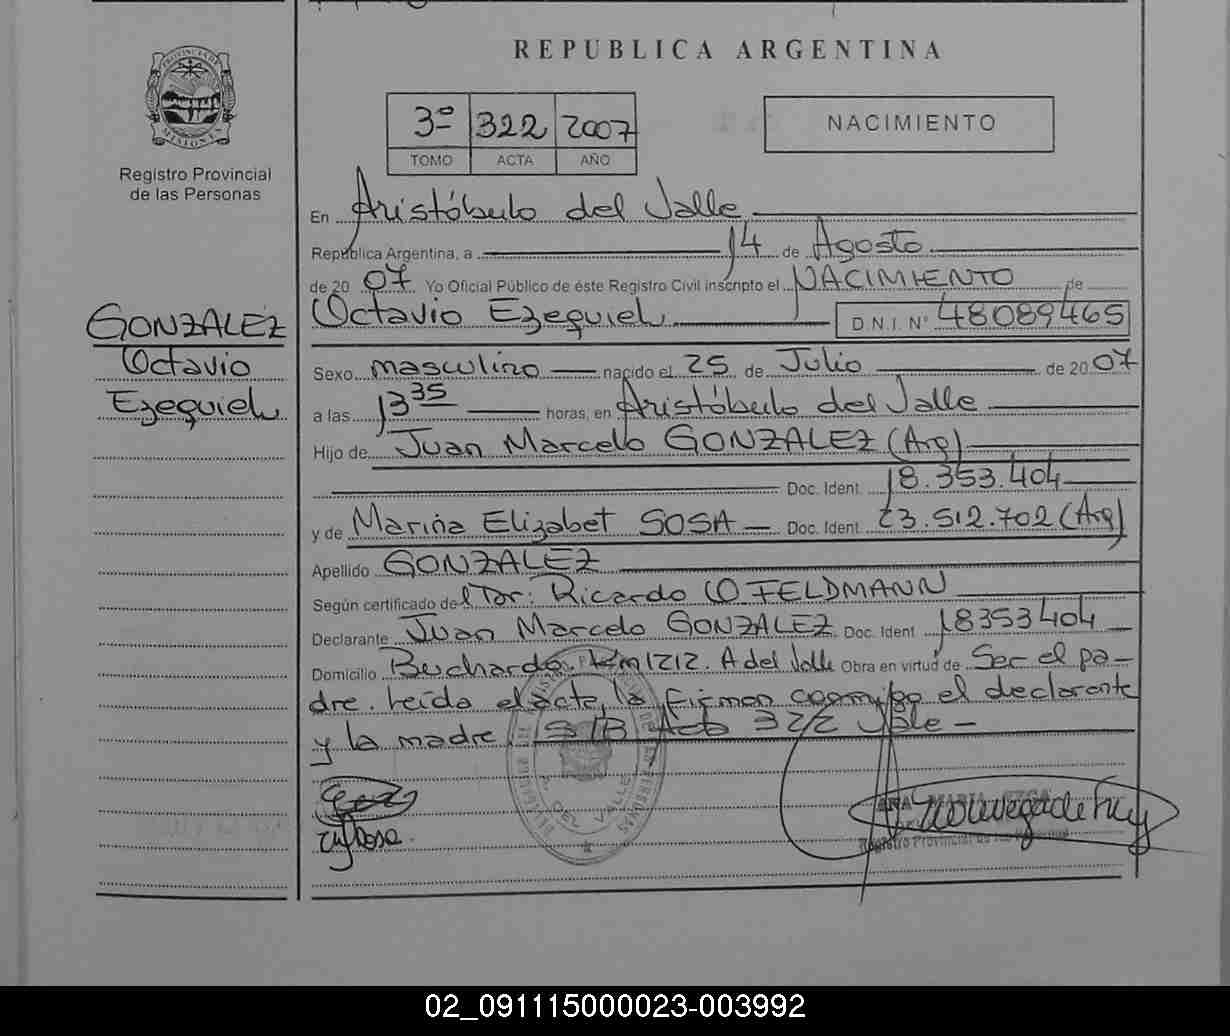 REPUBLICA ARGENTINA
PROVINCIA DE MISIONES
Registro Provincial
de las Personas
3º 322 2007
TOMO ACTA AÑO
NACIMIENTO
En Aristóbulo del Valle
República Argentina, a 14 de Agosto
de 20 07 Yo Oficial Público de éste Registro Civil inscripto el NACIMIENTO de
Octavio Ezequiel D.N.I. Nº 48089465
GONZALEZ
Octavio
Ezequiel
Sexo masculino nacido el 25 de Julio de 20 07
a las 13 35 horas, en Aristóbulo del Valle
Hijo de Juan Marcelo GONZALEZ (Arg)
Doc. Ident. 18.353.404
y de Marina Elizabet SOSA Doc. Ident. 23.512.702 (Arg)
Apellido GONZALEZ
Según certificado de Ricardo O FELDMANN
Declarante Juan Marcelo GONZALEZ. Doc. Ident 18353404
Domicilio Buchardo. Km 1212. A del Valle Obra en virtud de Ser el pa-
dre. Leída el acta, la firman conmigo el declarante
y la madre. S/B Acta 322 Vale -
DEL VALLE
ANA MARIA
Registro Provincial de
02_091115000023-003992